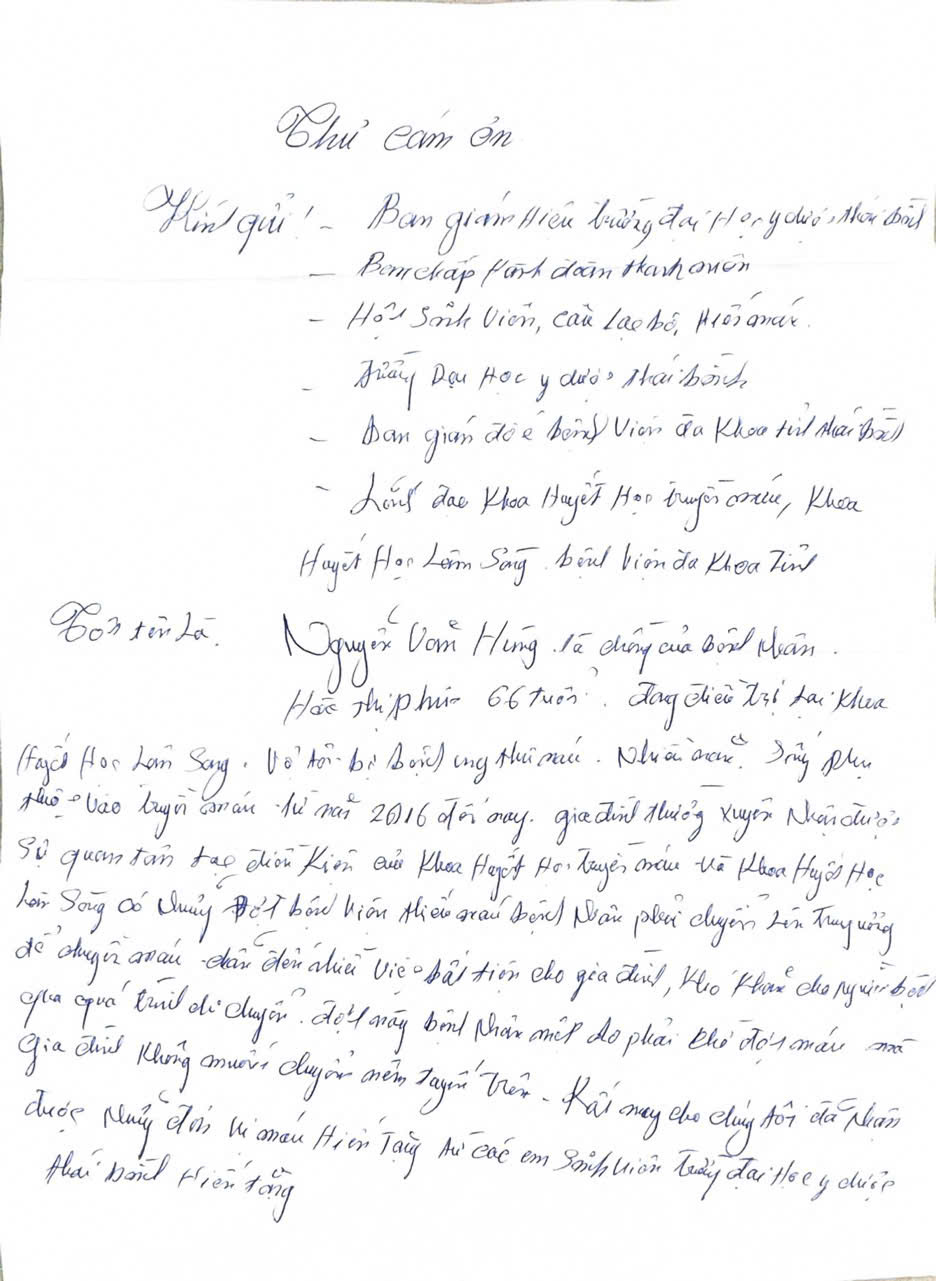 Thư cám ơn
Kính gửi! - Ban giám hiệu trường đại Học y dược thái bình
- Ban chấp hành đoàn thanh niên
- Hội Sinh Viên, câu lạc bộ, Hiến máu.
Trường Đại Học y dược thái bình
- Ban giám đốc bệnh Viện đa Khoa tỉnh thái bình
- Lãnh đạo Khoa Huyết Học truyền máu, Khoa
Huyết Học Lâm Sàng bệnh viện đa Khoa Tỉnh
Tôi tên Là. Nguyễn Văn Hùng. là chồng của bệnh Nhân.
thị phúc 66 tuổi. đang điều trị tại Khoa
Huyết Học Lâm Sàng. Vợ tôi bị bệnh ung thư máu. Nhiều năm. Sống phụ
thuộc vào truyền máu từ năm 2016 đến nay. gia đình thường xuyên Nhận được
Sự quan tâm tạo điều Kiện của Khoa Huyết Học truyền máu và Khoa Huyết Học
Lâm Sàng có Những đợt bệnh viện thiếu máu bệnh Nhân phải chuyển Lên Trung ương
để chuyền máu dẫn đến nhiều việc bất tiện cho gia đình, Khó Khăn cho Người bệnh
qua quá trình di chuyển. đợt này bệnh Nhân mệt do phải chờ đợi máu mà
gia đình Không muốn chuyển tuyến trên. Rất may cho chúng tôi đã Nhận
được Những đơn vị máu Hiến Tặng từ các em Sinh viên trường đại Học y dược
thái bình Hiến tặng